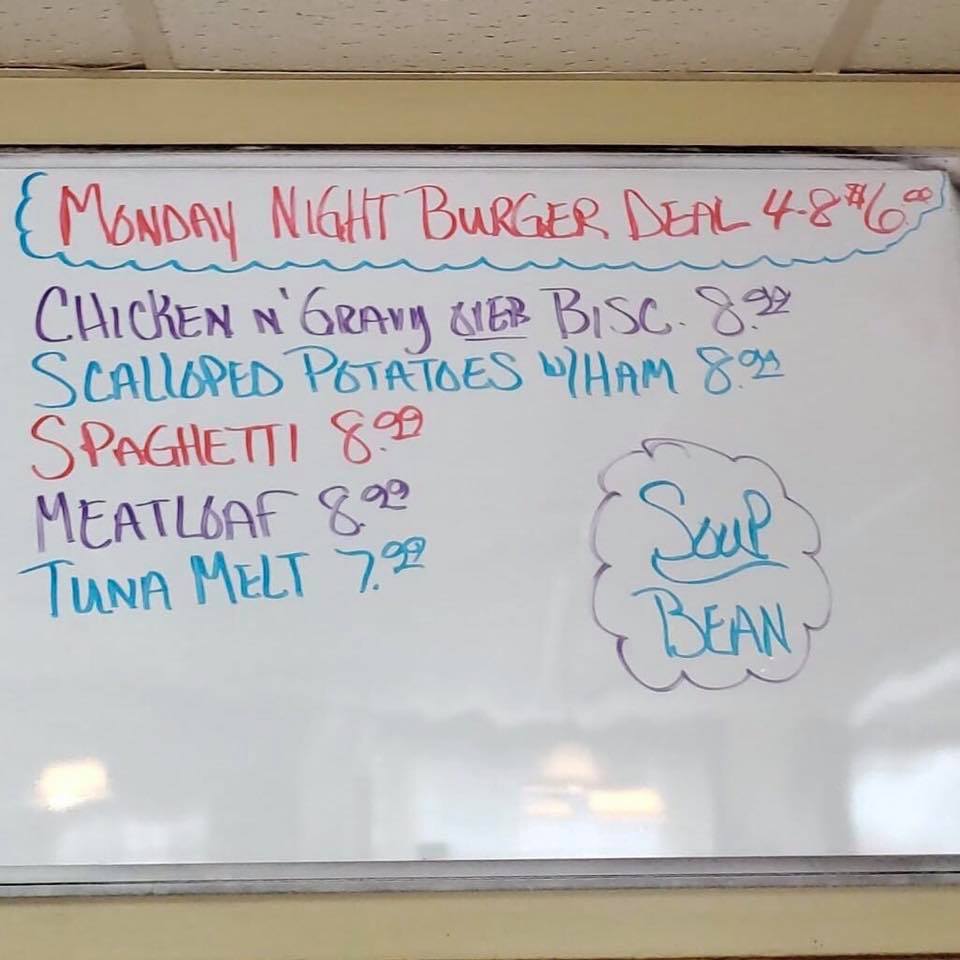 MONDAY NIGHT BURGER DEAL 4-8 $6.00
CHICKEN N' GRAVY OVER BISC. 8.99
SCALLOPED POTATOES W/HAM 8.99
SPAGHETTI 8.99
MEATLOAF 8.99
TUNA MELT 7.99
SOUP
BEAN